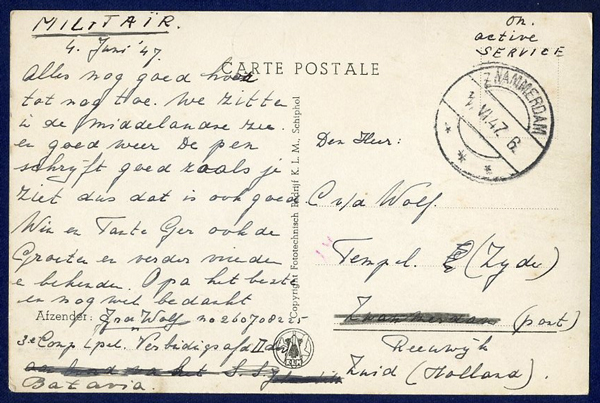 MILITAIR.
4. Juni '47.
on.
active
SERVICE
CARTE POSTALE
ZWAMMERDAM
VI.47. 6.
Alles nog goed
tot nog toe. We zitten
i de middelandse zee.
en goed weer De pen
schrijft goed zoals je
ziet dus dat is ook goed
Wim en Tante Ger ook de
Groeten en verder vrienden
e bekenden. Opa het beste
en nog wel bedankt
Afzender: Wolf no 260708
3e Comp 1 pel. Verbindigsafd II div
Batavia.
Copyright Fototechnisch Bedrijf K. L. M., Schiphol
Den Heer:
C v/d Wolf.
Tempel. (Zyde)
Zwammerdam (post)
Reeuwijk
Zuid (Holland).